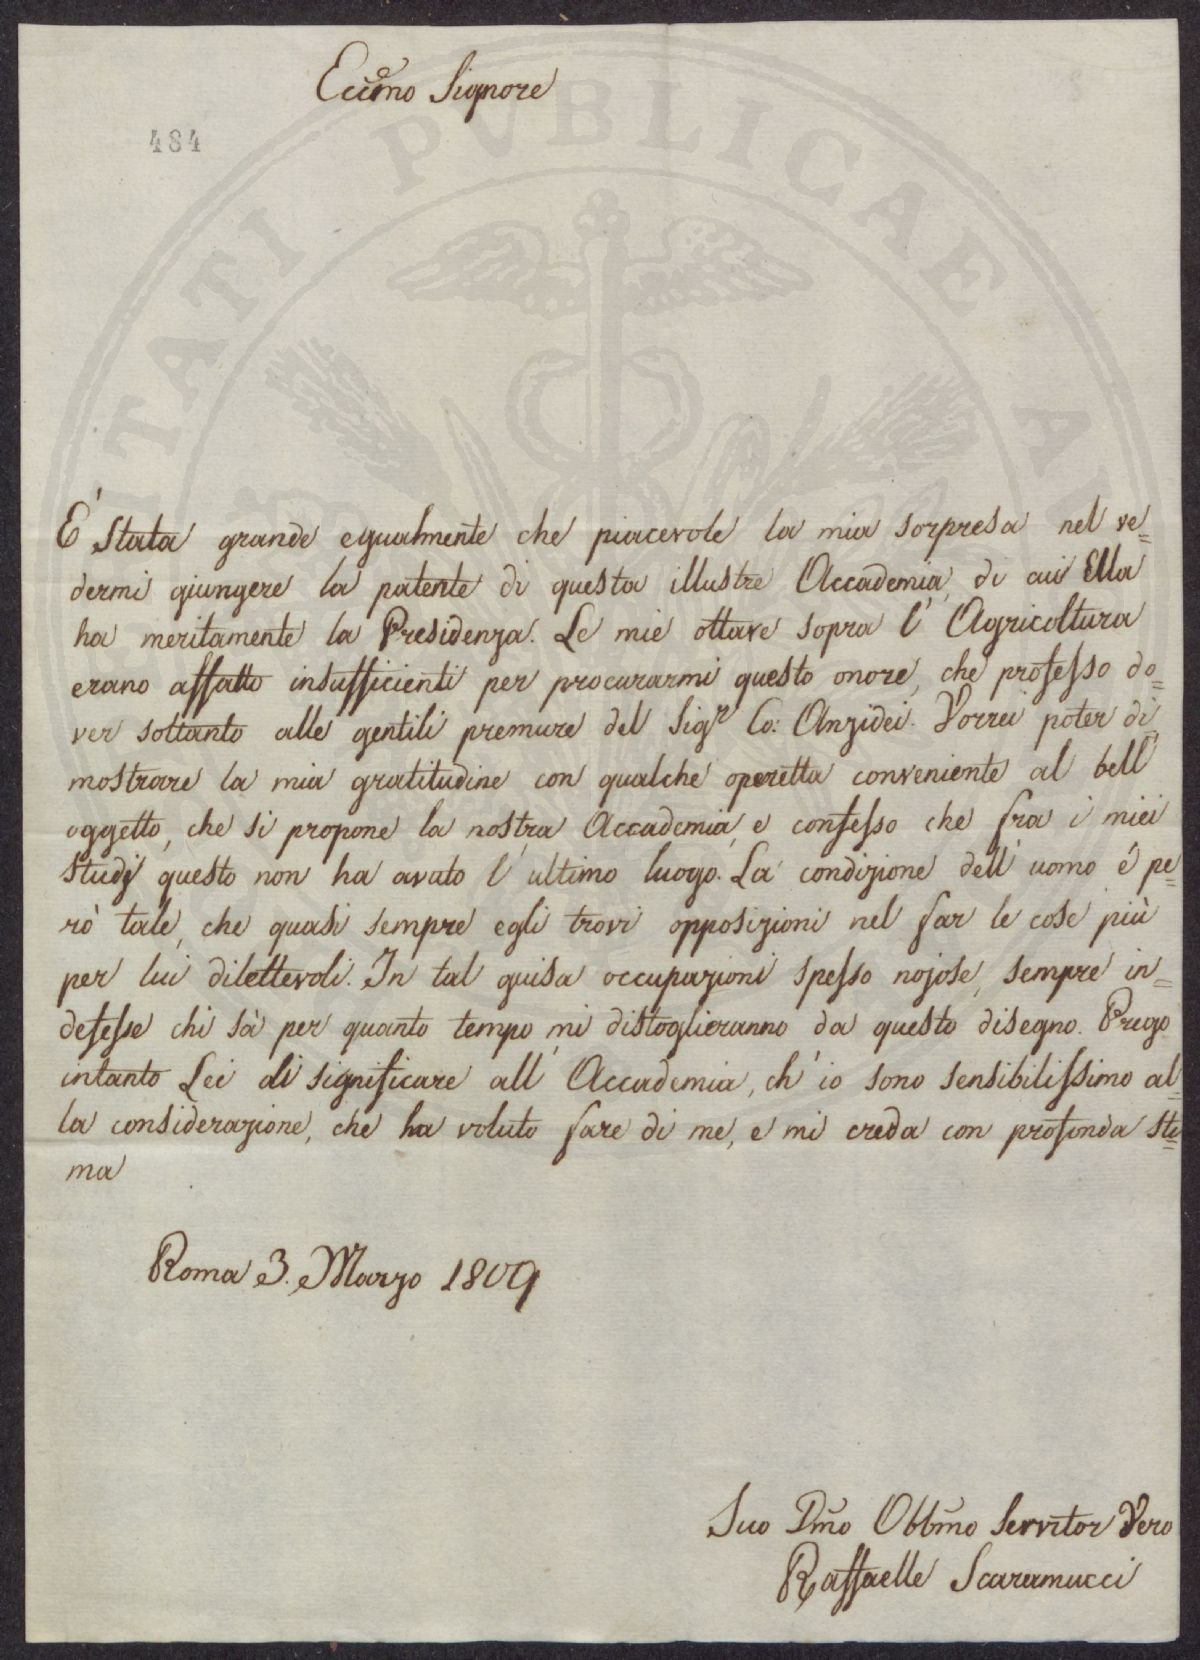 Eccmo Signore
484
E' stata grande egualmente che piacevole la mia sorpresa nel ve=
dermi giungere la patente di questa illustre Accademia, di cui Ella
ha meritamente la Presidenza. Le mie ottave sopra l' Agricoltura
erano affatto insufficienti per procurarmi questo onore, che professo do=
ver soltanto alle gentili premure del Sigr Co: Anzidei. Vorrei poter di=
mostrare la mia gratitudine con qualche operetta conveniente al bell'
oggetto, che si propone la nostra Accademia, e confesso che fra i miei
studj questo non ha avuto l' ultimo luogo. La condizione dell' uomo é pe=
rò tale, che quasi sempre egli trovi opposizioni nel far le cose più
per lui dilettevoli. In tal guisa occupazioni spesso nojose, sempre in=
defesse chi sà per quanto tempo mi distoglieranno da questo disegno. Prego
intanto Lei di significare all' Accademia, ch' io sono sensibilissimo al=
la considerazione, che ha voluto fare di me, e mi creda con profonda sti=
ma
Roma 3. Marzo 1809
Suo Dmo Obbmo Servitor Vero
Raffaelle Scaramucci
UTILITATI PVBLICAE